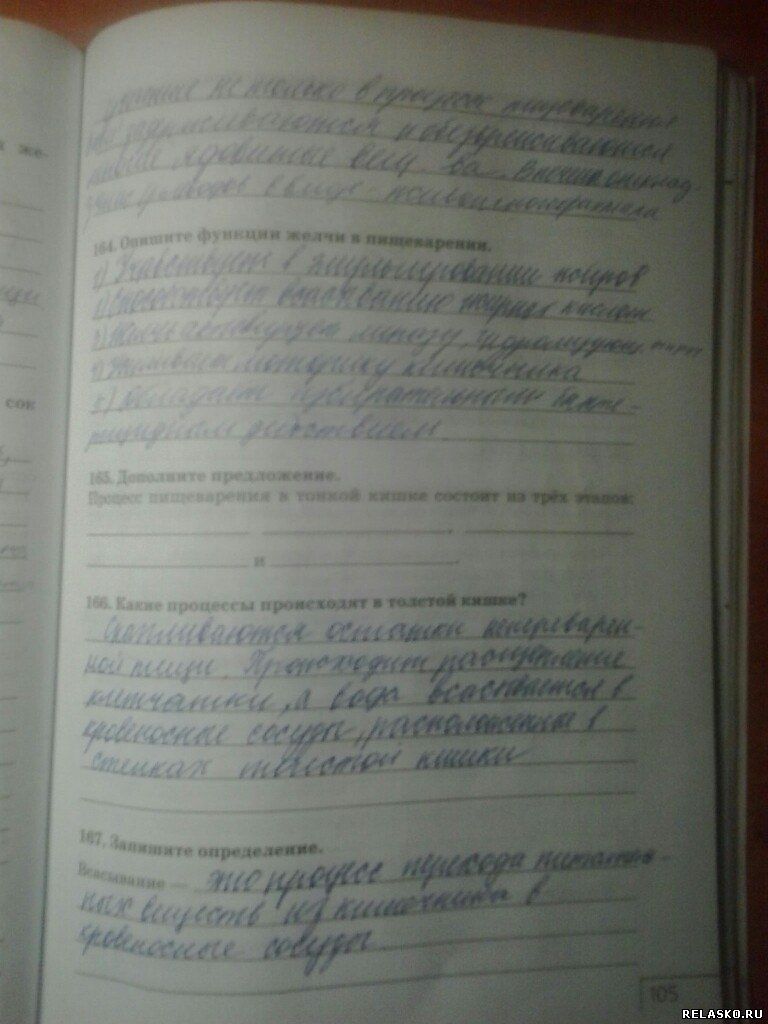 участие не только в процессе пищеварения
задерживаются и обезвреживаются
ядовитые
164. Опишите функции желчи в пищеварении.
1) Участвует в эмульгировании жиров
способствует всасыванию жирных кислот
3) Желчь активирует липазу,
4) Усиливает моторику кишечника
5) Обладает бакте-
рицидным действием
165. Дополните предложение.
Процесс пищеварения в тонкой кишке состоит из трёх этапов:
и
166. Какие процессы происходят в толстой кишке?
Скапливаются остатки непереварен-
ной пищи. Происходит расщепление
клетчатки, а вода всасывается в
кровеносные сосуды, расположенные в
стенках толстой кишки
167. Запишите определение.
Всасывание — это процесс перехода питатель-
ных веществ из кишечника в
кровеносные сосуды
105
сок
RELASKO.RU